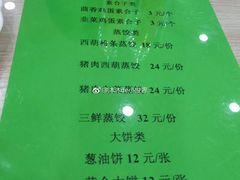 素合子类
茴香鸡蛋素合子 3 元/个
韭菜鸡蛋素合子 3 元/个
蒸饺类
西胡格条蒸饺 18 元/份
猪肉西葫蒸饺 24 元/份
24 元/份
三鲜蒸饺 32 元/份
大饼类
葱油饼 12 元/张
12 元/张